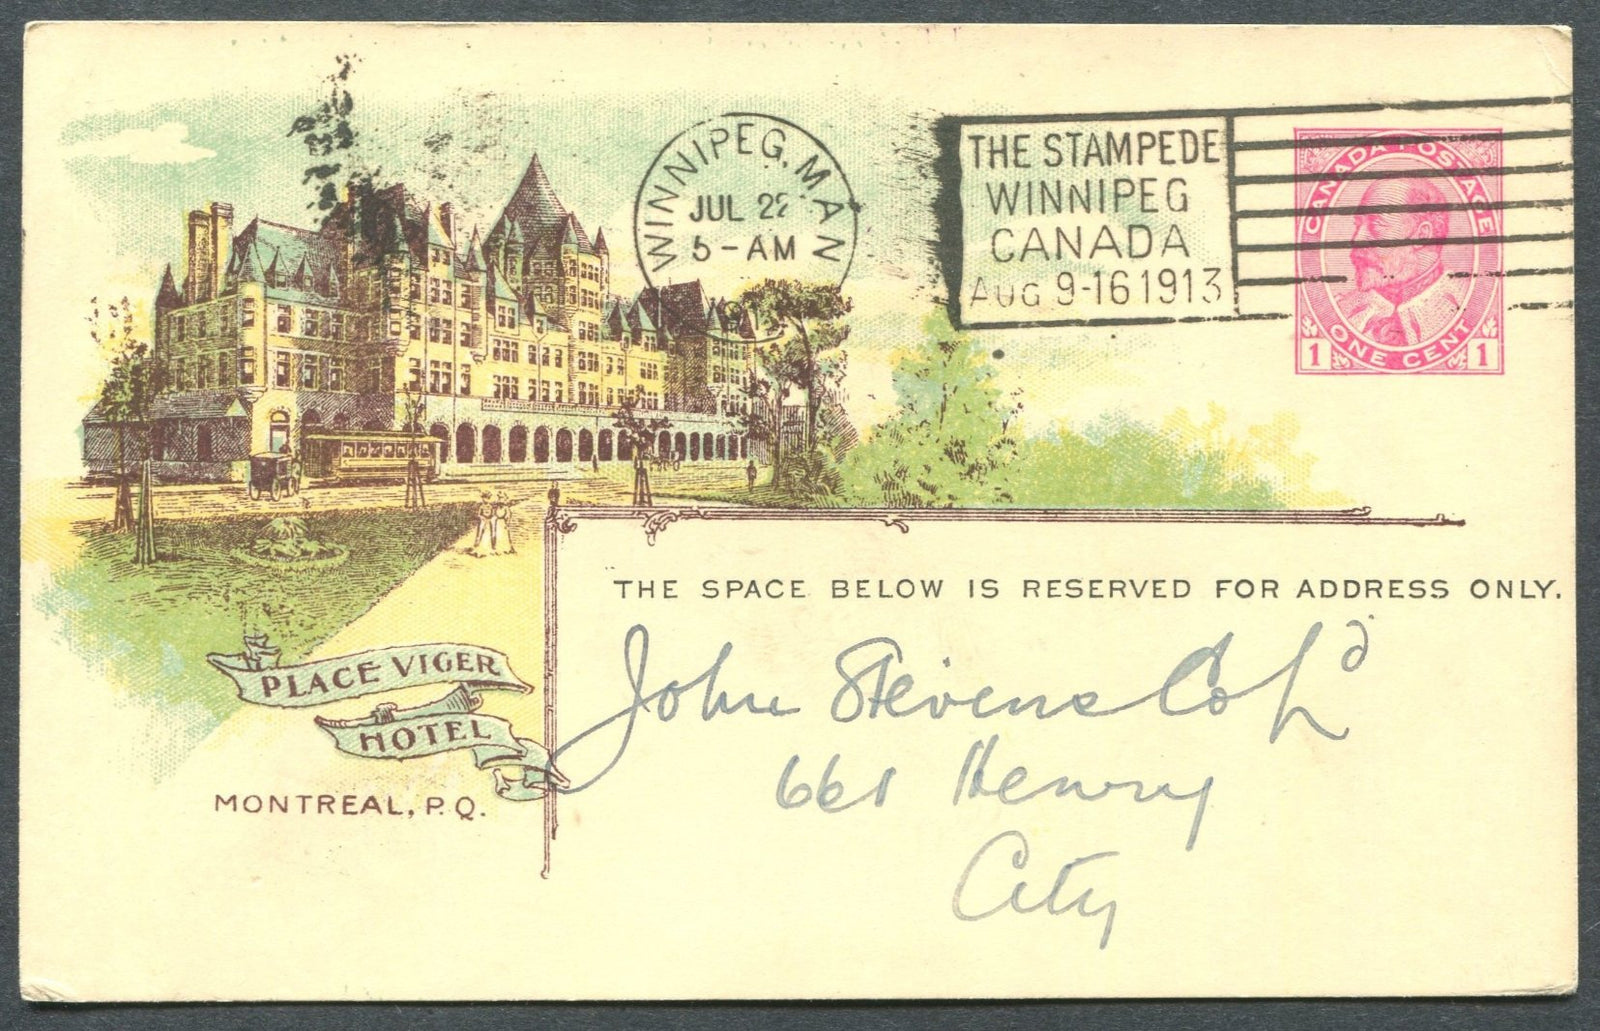 WINNIPEG. MAN
JUL 22
5-AM
THE STAMPEDE
WINNIPEG
CANADA
AUG 9-16 1913
CANADA POSTAGE
ONE CENT
1 1
THE SPACE BELOW IS RESERVED FOR ADDRESS ONLY.
PLACE VIGER
HOTEL
MONTREAL, P.Q.
John Stevens Co Ld
661 Henry
City